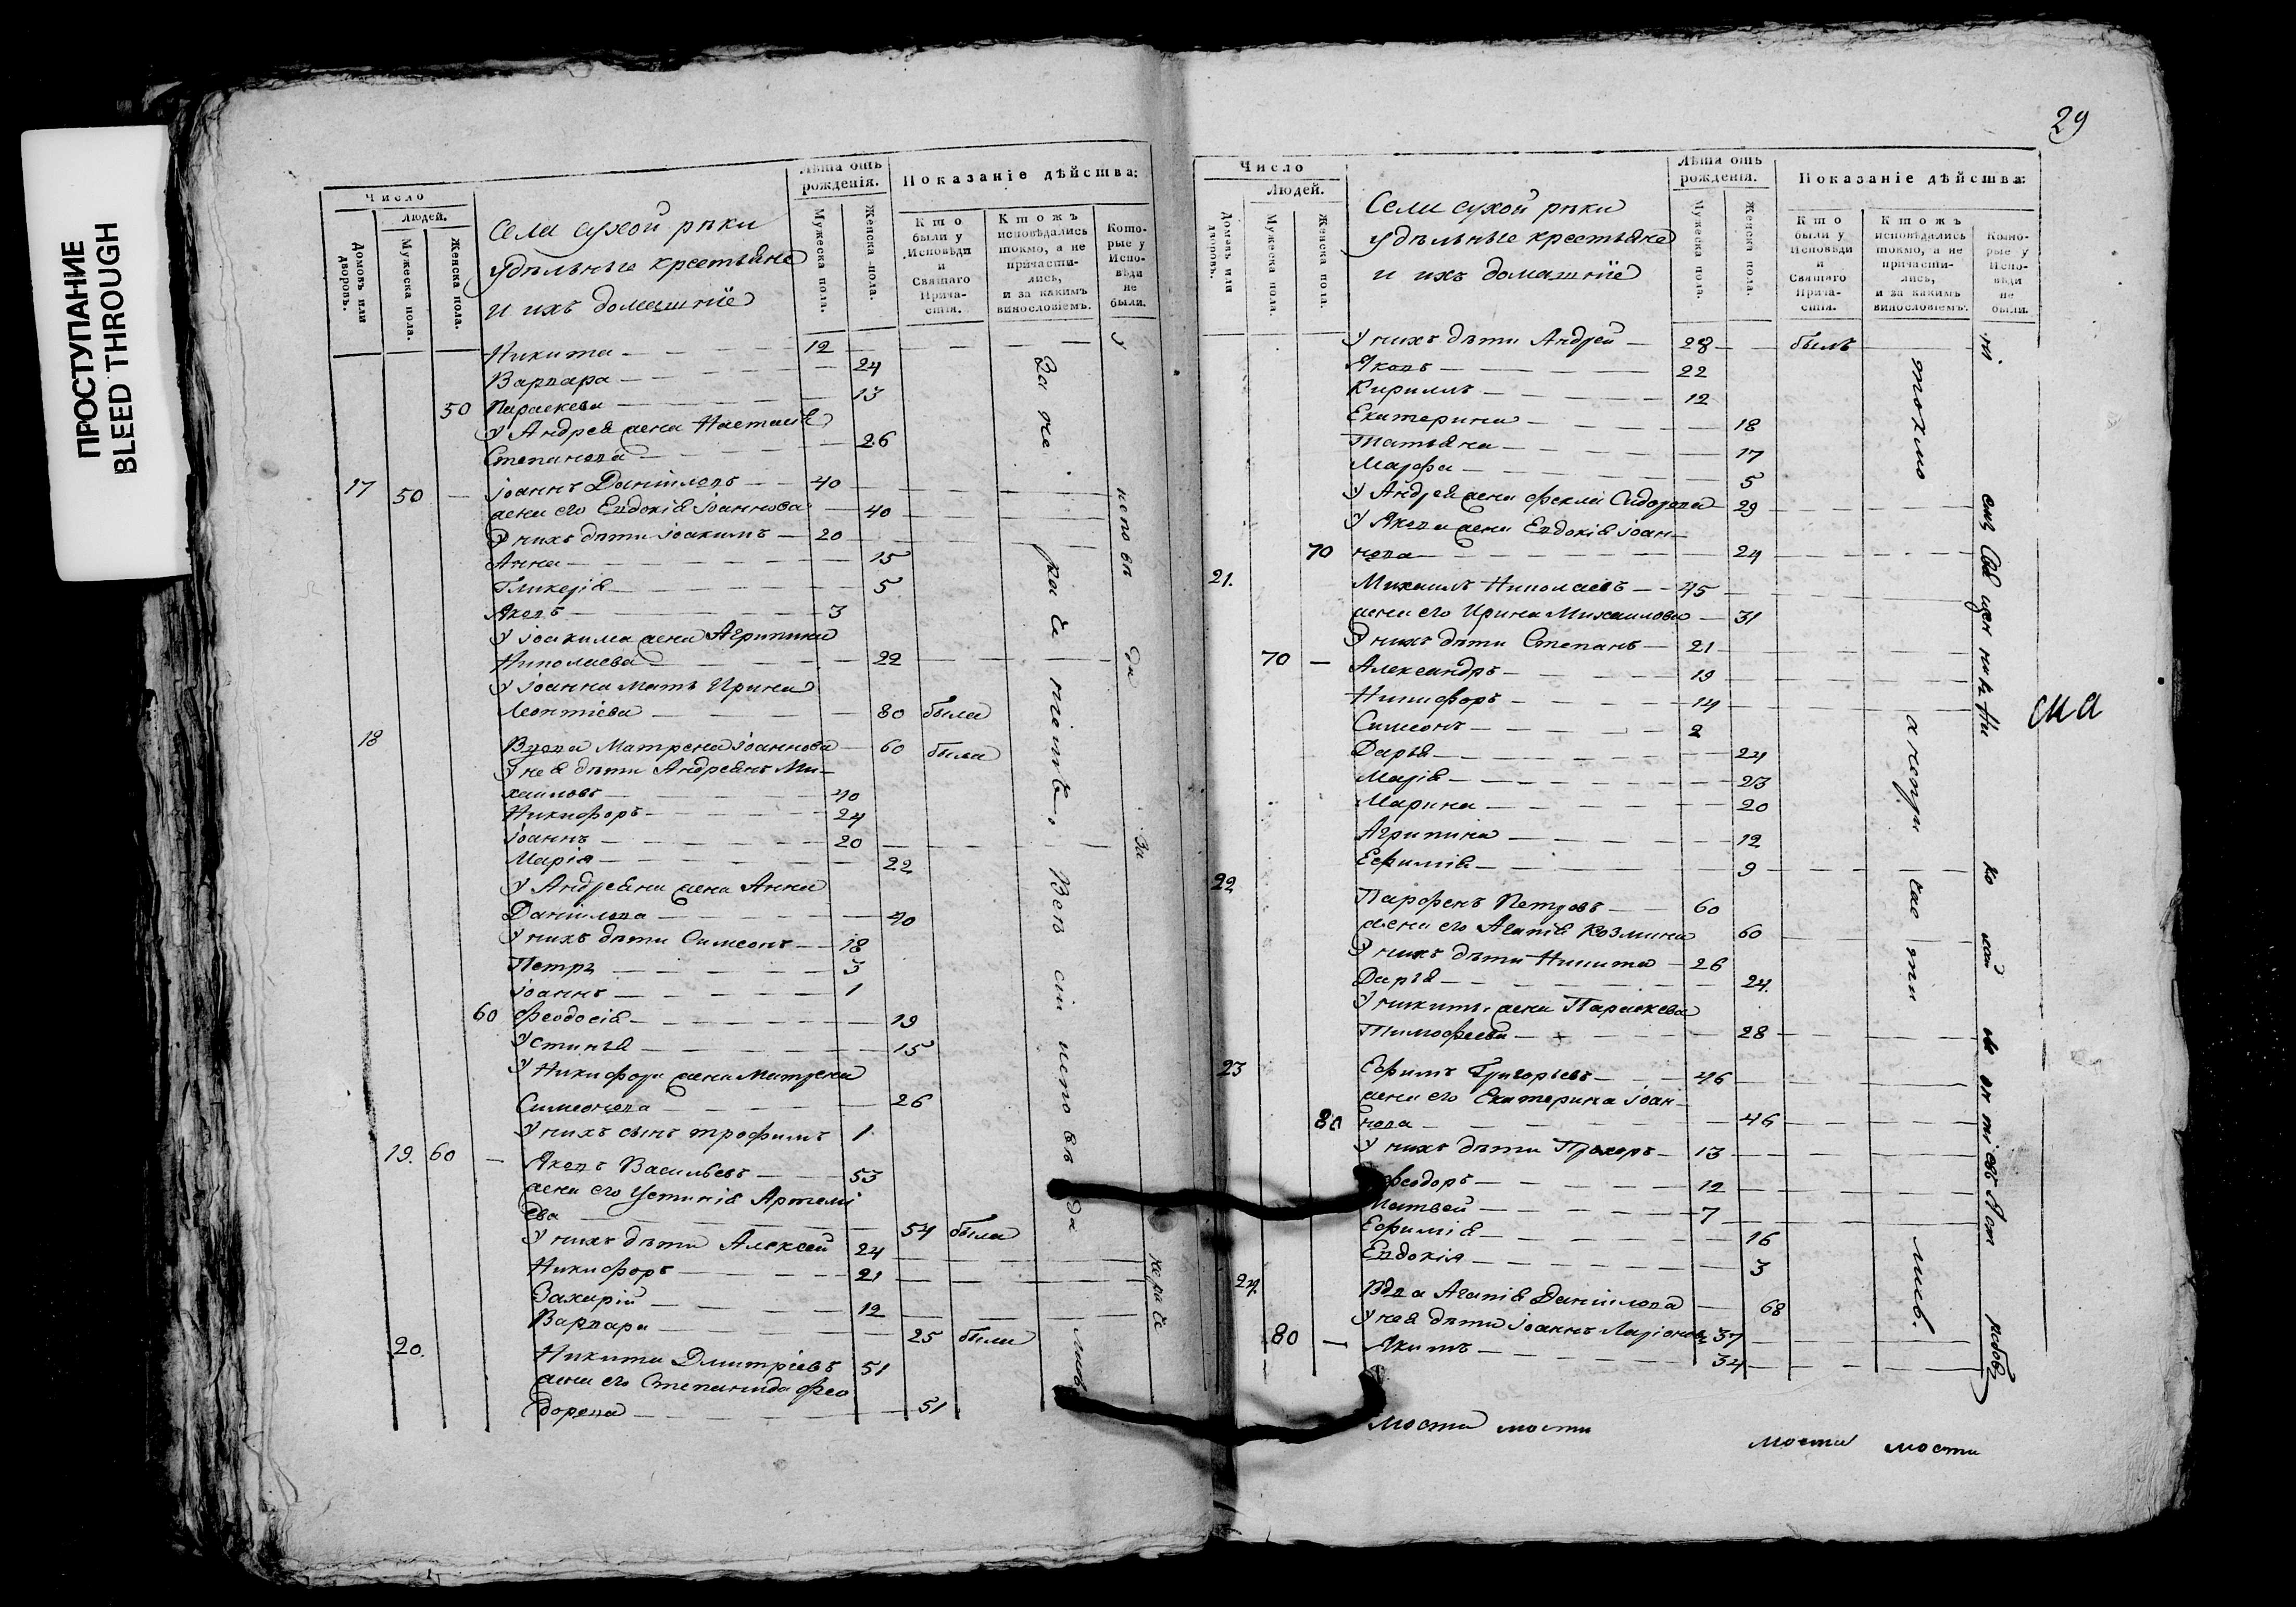 ПРОСТУПАНИЕ
BLEED THROUGH
29
Число
Людей.
Домовъ или дворовъ.
Мужеска пола.
Женска пола.
Села сухой рѣки
удѣльные крестьяне
и ихъ домашніе
Лѣта отъ рожденія.
Мужеска пола.
Женска пола.
Показаніе дѣйства:
Кто были у Исповѣди и Святаго Причастія.
Ктожъ исповѣдались токмо, а не причастились, и за какимъ винословіемъ.
Которые у Исповѣди не были.
Никита 12
Варвара 24
50 Параскева 13
У Андрея жена Настасія
Степанова 26
17 50 — Іоаннъ Даніиловъ 40
жена его Евдокія Іоаннова 40
У нихъ дѣти Іоакимъ 20
Анна 15
Гликерія 5
Яковъ 3
У Іоакима жена Агрипина
Николаева 22
У Іоанна мать Ирина
Леонтіева 80 была
18 Вдова Матрена Іоаннова 60 была
У нея дѣти Андреянъ Ми-
хаиловъ 40
Никифоръ 24
Іоаннъ 20
Марія 22
У Андреяна жена Анна
Даніилова 40
У нихъ дѣти Симеонъ 18
Петръ 3
Іоаннъ 1
60 Феодосія 19
Устинья 15
У Никифора жена Матрена
Симеонова 26
У нихъ сынъ Трофимъ 1
19. 60 — Яковъ Васильевъ 53
жена его Устинія Артемі
ева 54 была
У нихъ дѣти Алексей 24
Никифоръ 21
Захарій 12
Варвара 25 была
20. Никита Дмитріевъ 51
жена его Степанида Фео
дорова 51
За не ра че ніемъ.
Число
Людей.
Домовъ или дворовъ.
Мужеска пола.
Женска пола.
Села сухой рѣки
удѣльные крестьяне
и ихъ домашніе
Лѣта отъ рожденія.
Мужеска пола.
Женска пола.
Показаніе дѣйства:
Кто были у Исповѣди и Святаго Причастія.
Ктожъ исповѣдались токмо, а не причастились, и за какимъ винословіемъ.
Которые у Исповѣди не были.
У нихъ дѣти Андрей 28 былъ
Яковъ 22
Кириллъ 12
Екатерина 18
Татьяна 17
Марфа 5
У Андрея жена Фекла Сидорова 29
У Якова жена Евдокія Іоан-
70 нова 24
21. Михаилъ Николаевъ 45
жена его Ирина Михаилова 31
У нихъ дѣти Степанъ 21
70 — Александръ 19
Никифоръ 14
Симеонъ 2
Дарья 24
Марія 23
Марина 20
Агрипина 12
Ефимія 9
22 Парфенъ Петровъ 60
жена его Агапія Козмина 60
У нихъ дѣти Никита 26
Дарья 24.
У Никиты жена Параскева
Тимофеева 28
23 Ефимъ Григорьевъ 46
жена его Екатерина Іоан-
80 нова 46
У нихъ дѣти Прохоръ 13
Феодоръ 12
Матвей 7
Ефимія 16
Евдокія 3
24. Вдва Агапія Даніилова 68
У нея дѣти Іоаннъ Ларіоновъ 37
80 — Якимъ 34
токмо
а непри час ти лись.
мости мости
мости мости